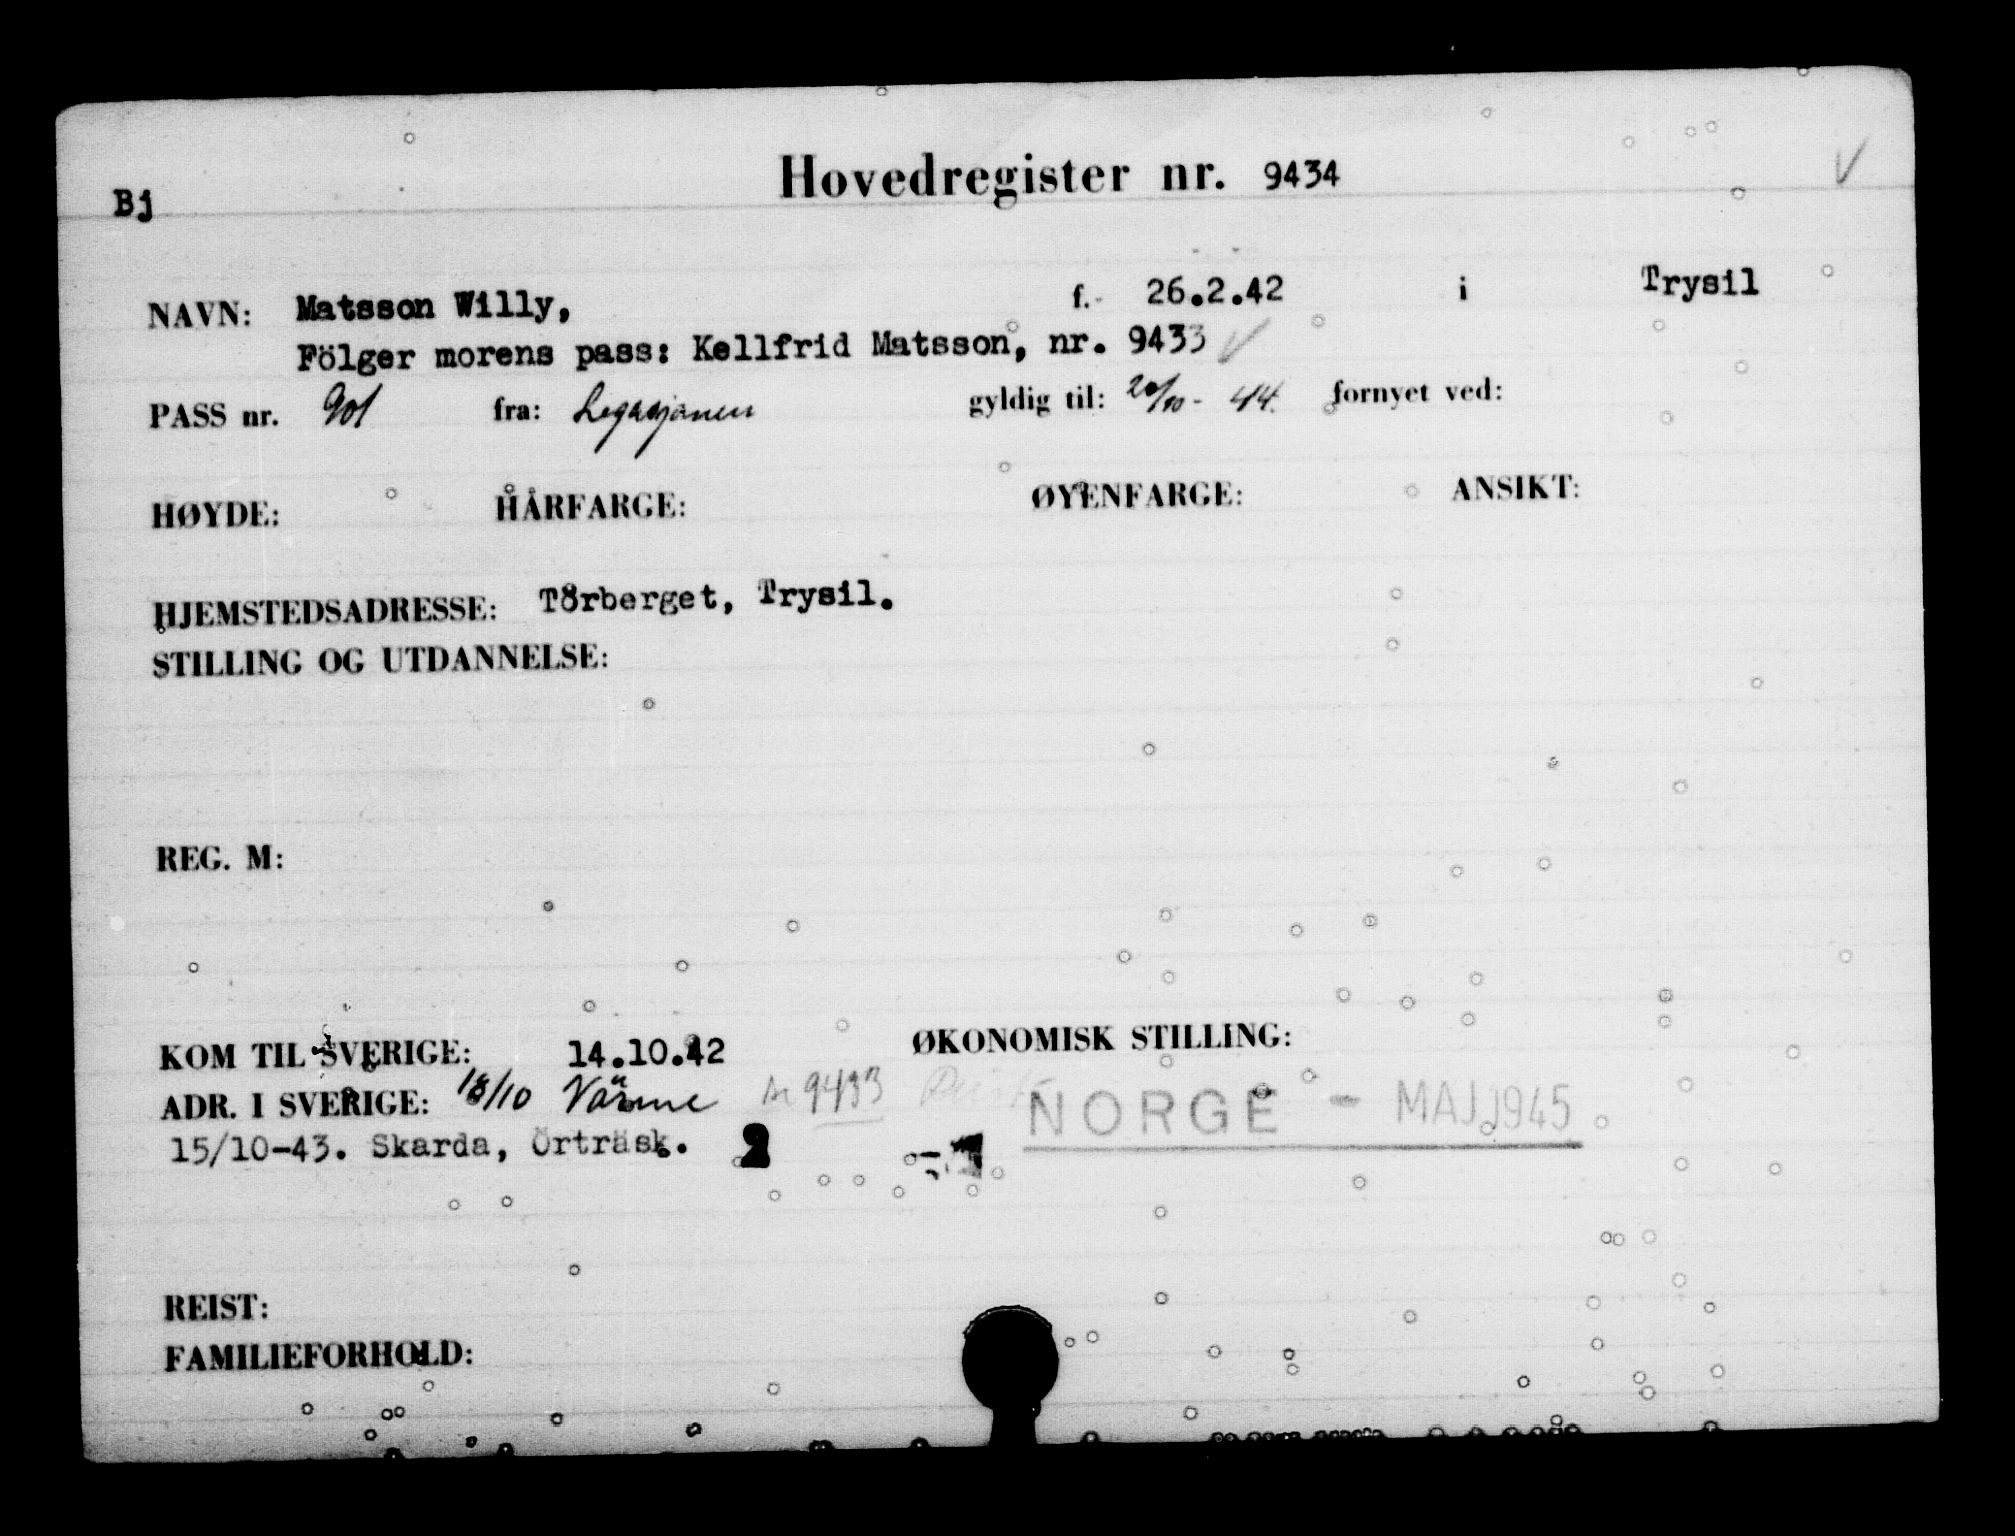 Hovedregister nr. 9434
Bj
NAVN: Matsson Willy, f. 26.2.42 i Trysil
Fölger morens pass: Kellfrid Matsson, nr. 9433
PASS nr. 901 fra: Legasjonen gyldig til: 20/10 - 44. fornyet ved:
HØYDE: HÅRFARGE: ØYENFARGE: ANSIKT:
HJEMSTEDSADRESSE: Törberget, Trysil.
STILLING OG UTDANNELSE:
REG. M:
KOM TIL SVERIGE: 14.10.42 ØKONOMISK STILLING:
ADR. I SVERIGE: 18/10 9433 NORGE - MAJ 1945
15/10-43. Skarda, Örträsk.
REIST:
FAMILIEFORHOLD: